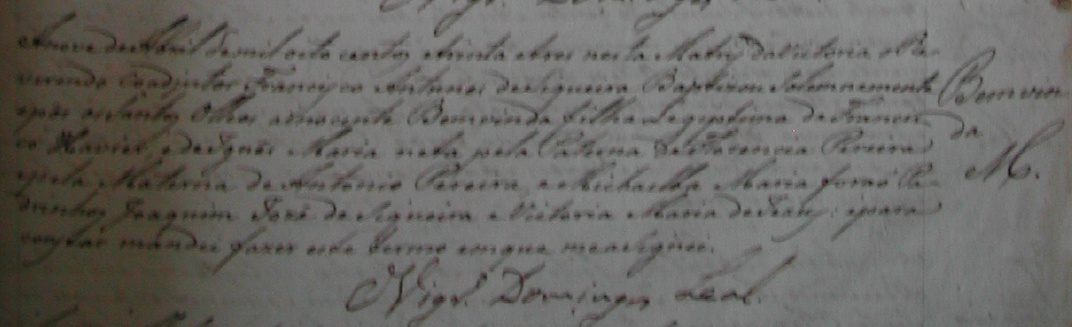 Anove de Abril de mil oito centos etrinta etres nesta Matriz daVictoria o Re-
verendo Coadjuctor Francisco Antunes de Siqueira Baptizou Solemnemente
epôs osSantos Olhos ainocente Bemvinda filha Legiptima de Francis-
co Xavier, e de Ignês Maria neta pela Paterna de Florencia Pereira
epela Materna de Antonio Pereira, e Michaella Maria forão Pa-
drinhos Joaquim José de Siqueira e Victoria Maria de Jesus: epara
constar mandei fazer este Termo emque measignei.
Vigrº. Domingos Leal.
Bemvin-
da
M.